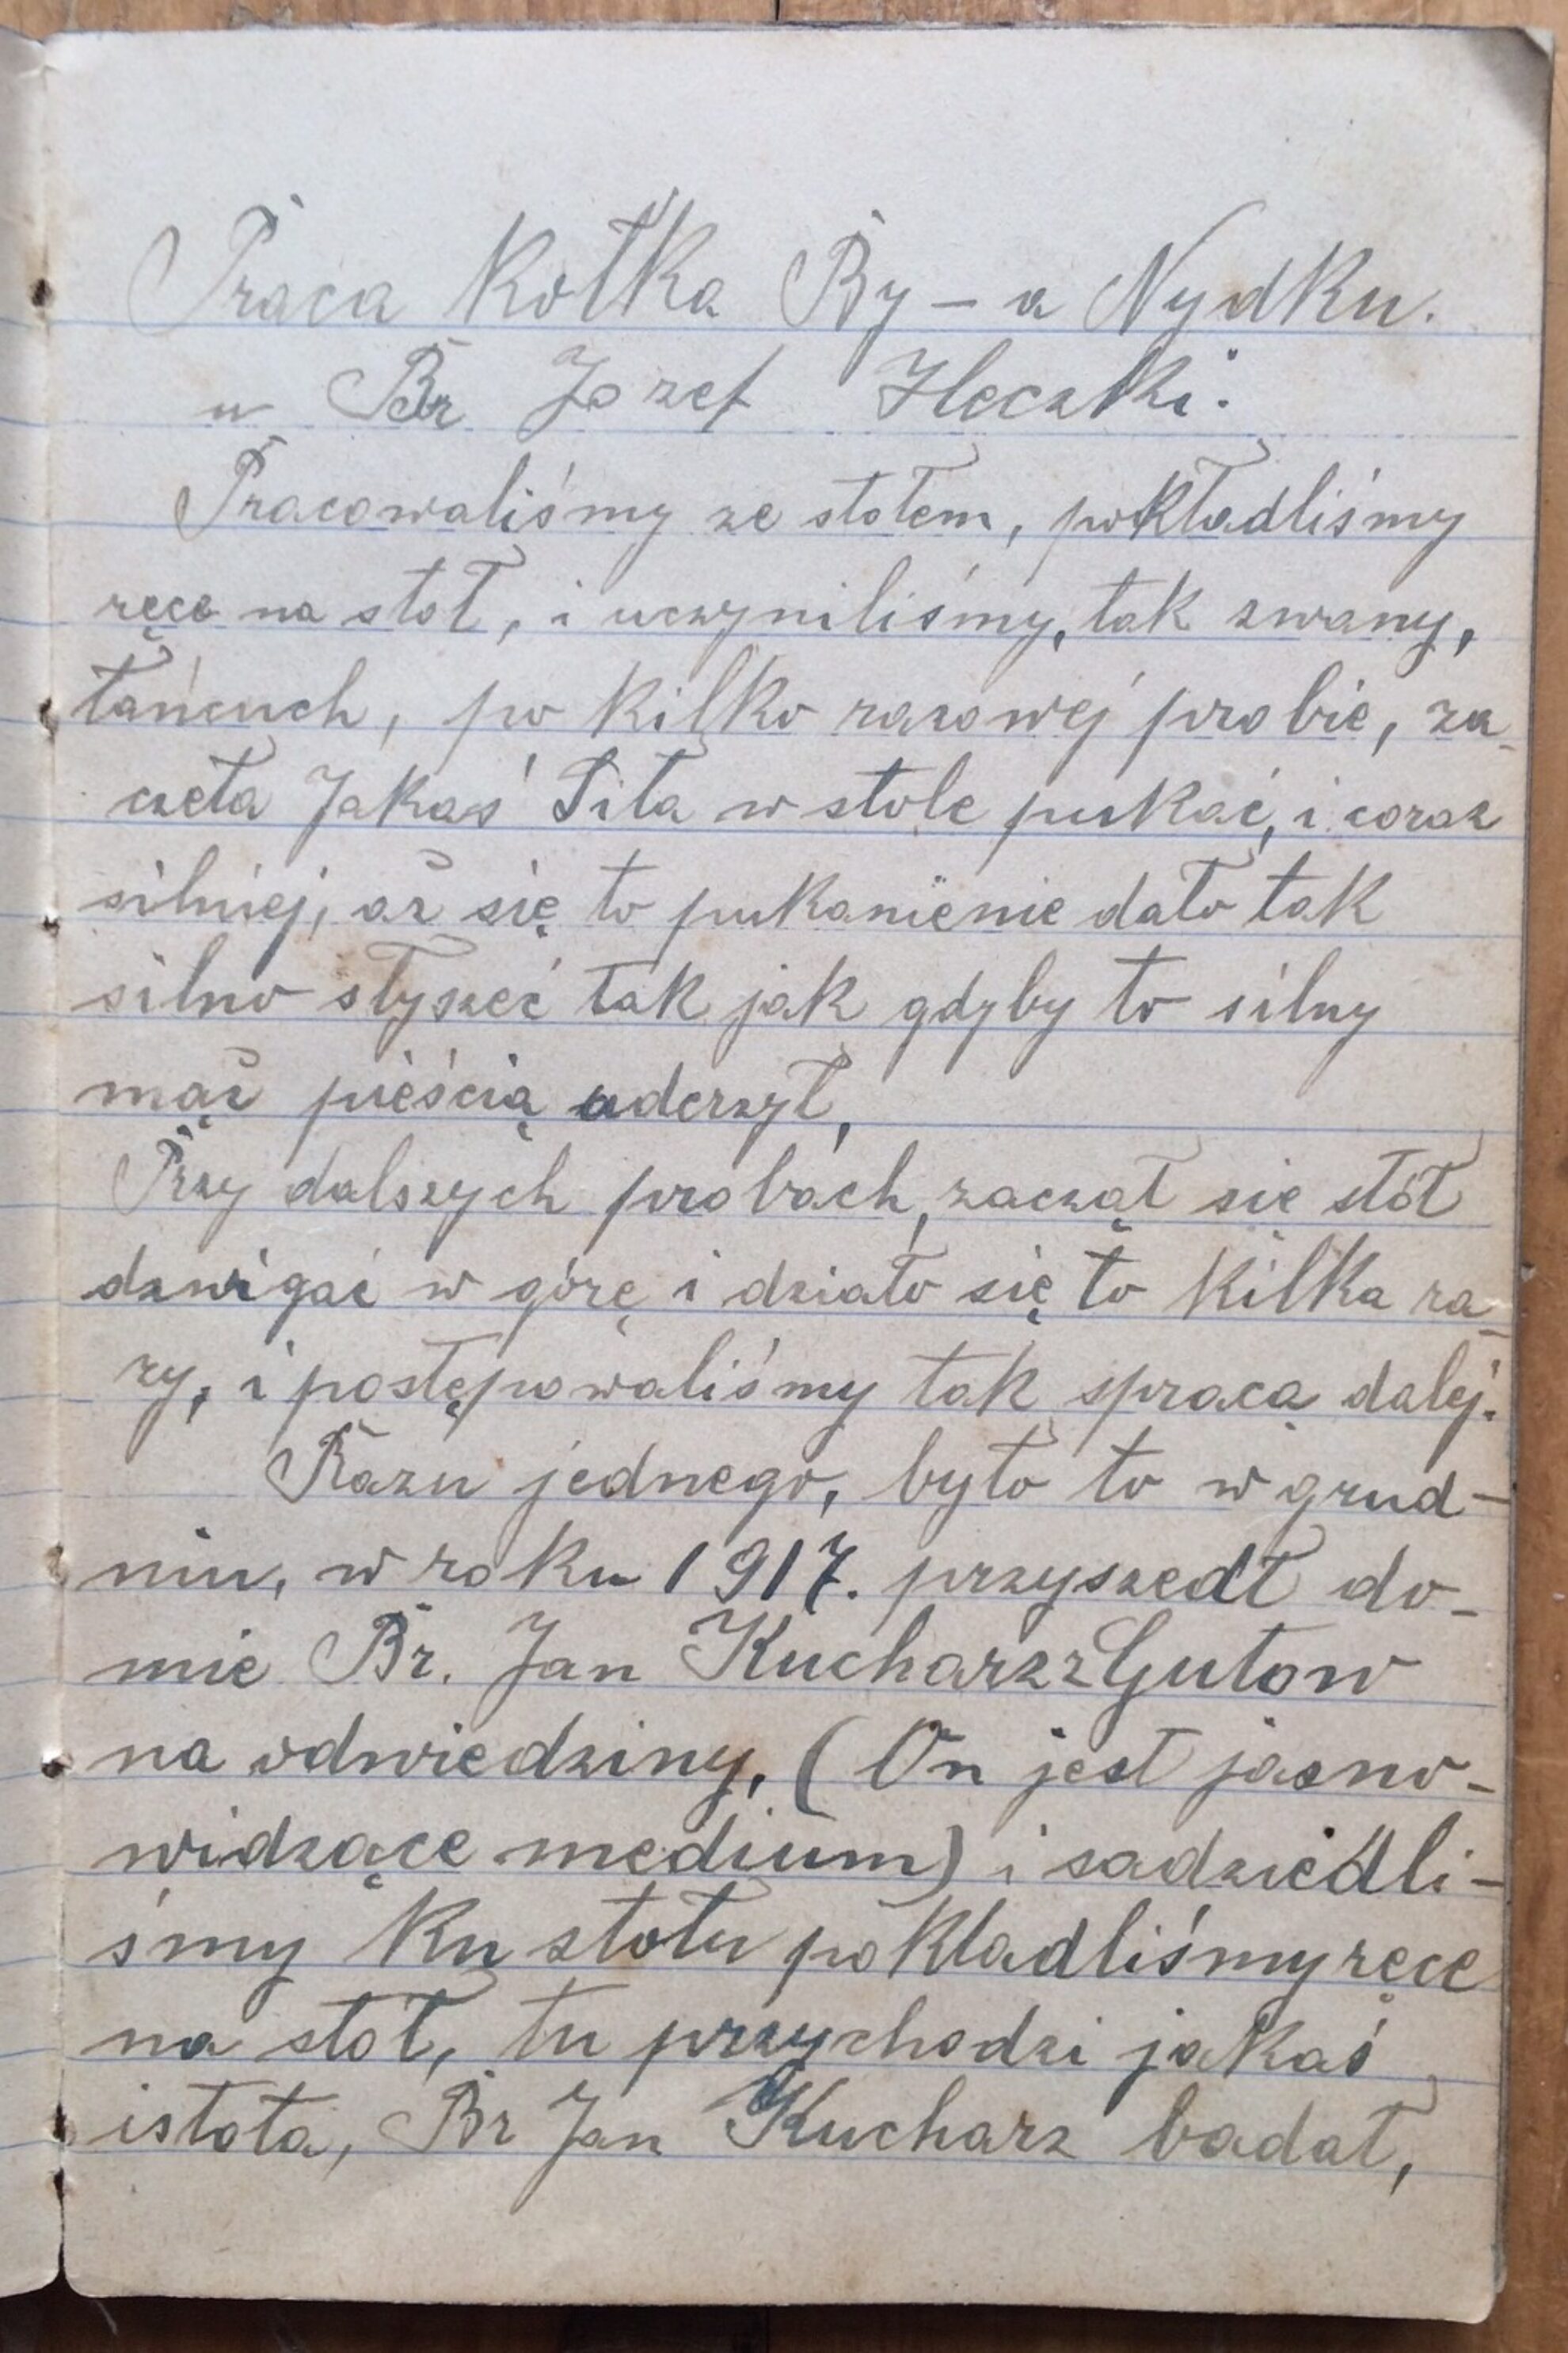 Praca Kołka By - a Nydku.
u Br Jozef Heczki.
Pracowaliśmy ze stołem, pokładliśmy
ręce na stoł, i uczyniliśmy, tak zwany,
łańcuch, po kilko razowej probie, za-
czeła Jakaś Siła w stole pukać, i coraz
silniej, aż się to pukanienie dało tak
silno słyszeć tak jak gdyby to silny
mąż pieścią uderzył,
Przy dalszych probach, zaczął sie stół
dzwigać w górę i działo się to kilka ra-
zy, i postępowaliśmy tak spracą dalej.
Razu jednego, było to w grud-
niu, w roku 1917. przyszedł do-
mie Br. Jan Kucharz z Gutow
na odwiedziny, (On jest jasno-
widzące medium) i sadziedli-
śmy ku stołu pokładliśmy ręce
na stoł, tu przychodzi jakaś
istota, Br Jan Kucharz badał,